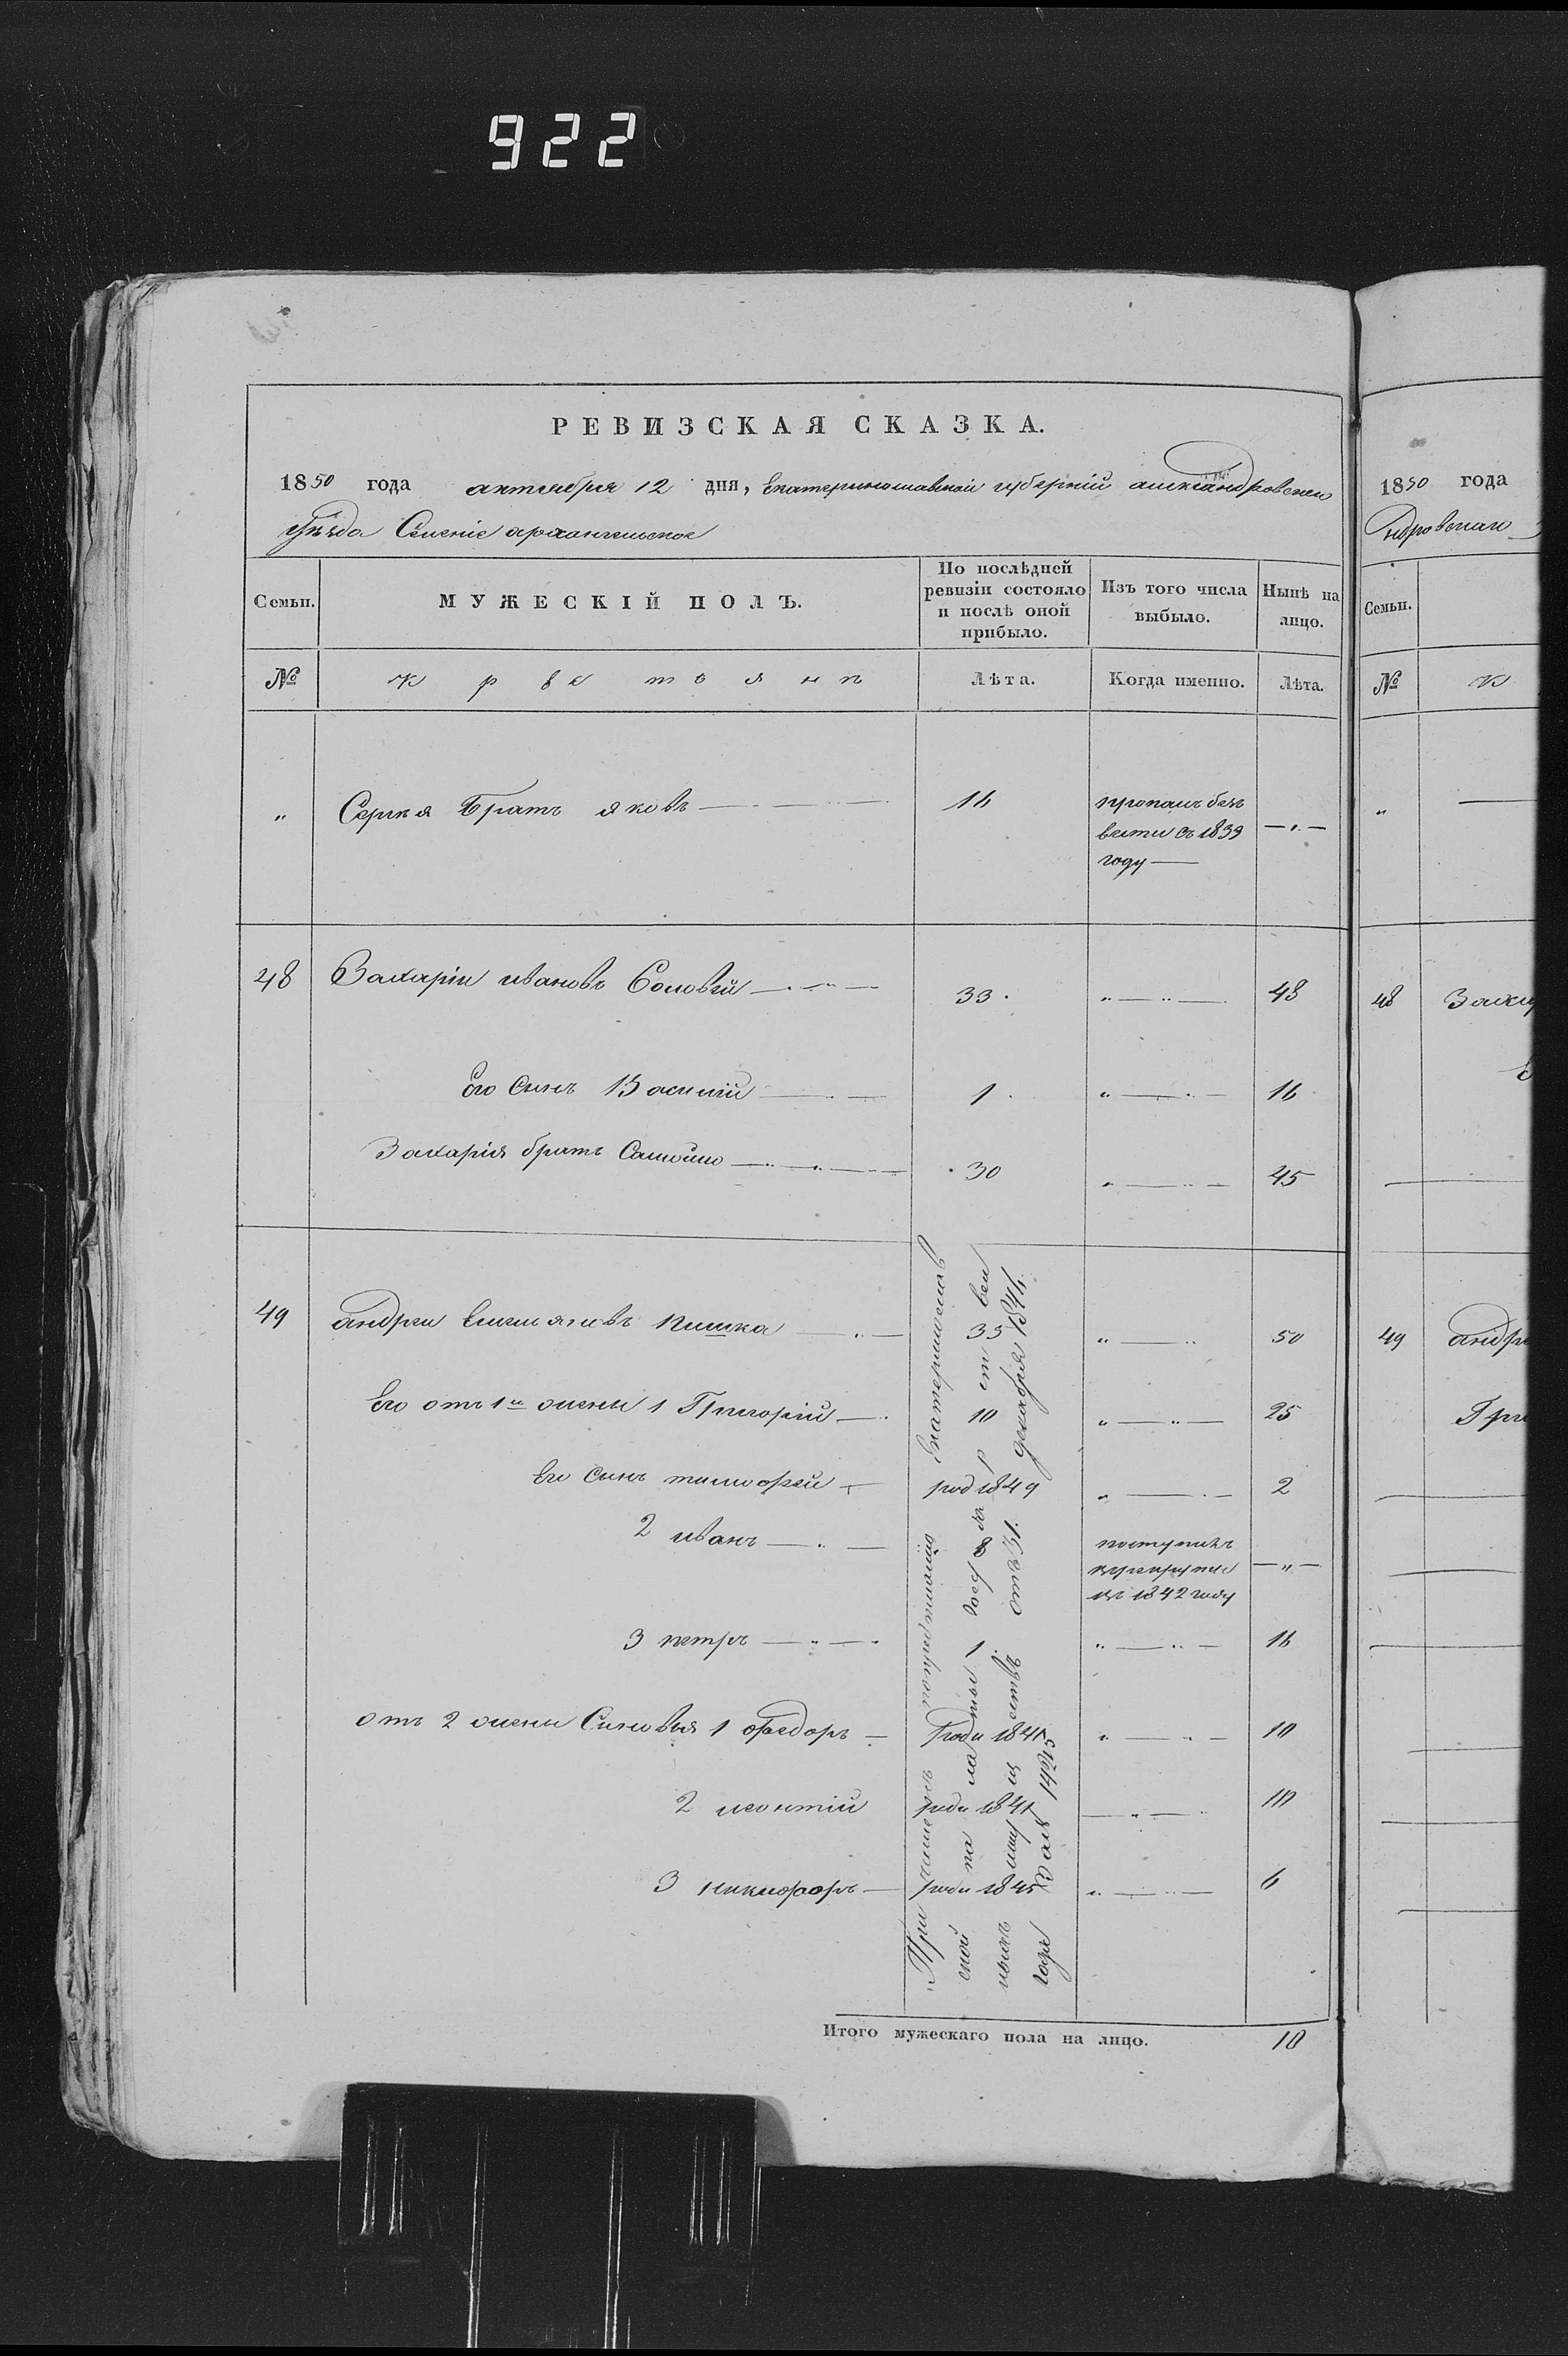 922
РЕВИЗСКАЯ СКАЗКА.
1850 года октября 12 дня, Екатеринославской губерніи александровскаго
уѣзда Селеніе архангельское
Семьи. МУЖЕСКІЙ ПОЛЪ. По послѣдней ревизіи состояло и послѣ оной прибыло. Изъ того числа выбыло. Нынѣ на лицо.
№ Крестьянъ Лѣта. Когда именно. Лѣта.
„ Сергѣя Братъ яковъ 16 пропалъ безъ
вести въ 1839
году
48 Захарій ивановъ Соловѣй 33. 48
Его Синъ Василій 1 16
Захарія братъ Самойло 30 45
49 андрей Емельяновъ пишка 35 50
Его отъ 1й жены 1 Григорій 10 25
Его Синъ тимофей род 1849 2
2 иванъ 8 поступилъ
врекруты
въ 1842 году
3 петръ 1 16
отъ 2 жены Синовья 1 федоръ роди 1841 10
2 леонтій роди 1841 10
3 никифоръ роди 1845 6
Итого мужескаго пола на лицо. 10
1850 года
ндровскаго
Семьи.
№ К
48 Заха
49 андре
Гри